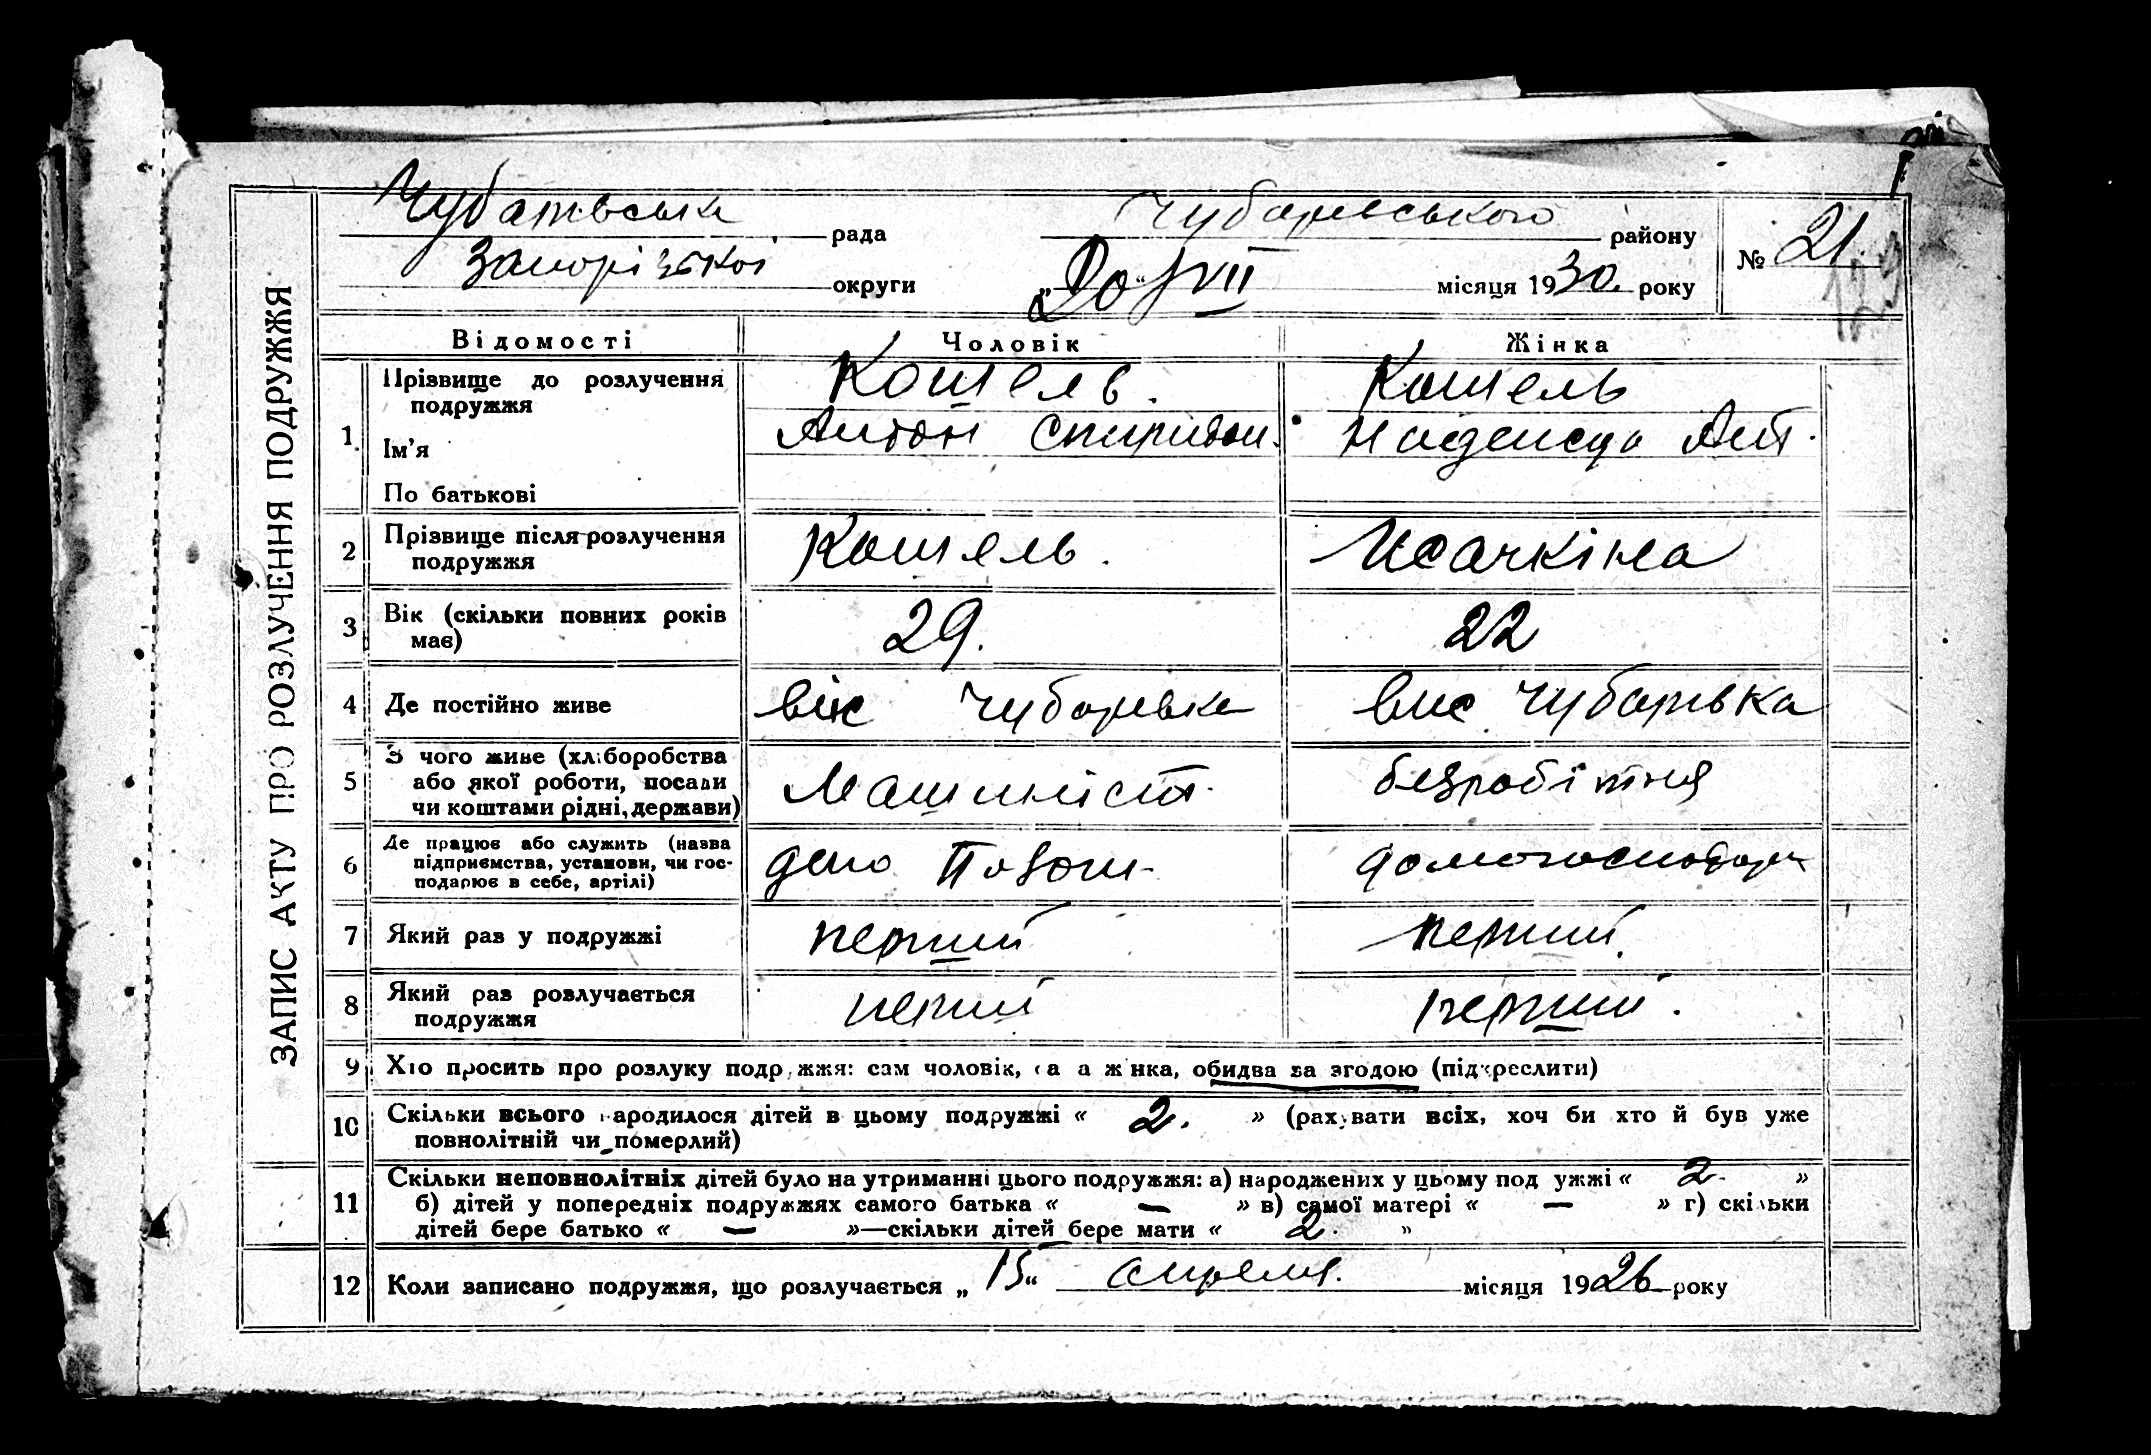 ЗАПИС АКТУ ПРО РОЗЛУЧЕННЯ ПОДРУЖЖЯ
Чубарівська рада Чубарівського району
Запорізької округи „20“ VII місяця 1930. року
№ 21
Відомості Чоловік Жінка
1. Прізвище до розлучення подружжя Кошель. Кошель
Ім’я Антон Спиридон. Надежда Ант.
По батькові
2 Прізвище після розлучення подружжя Кошель. Исачкіна
3 Вік (скільки повних років має) 29. 22
4 Де постійно живе Чубарівка Чубарівка
5 З чого живе (хліборобства або якої роботи, посади чи коштами рідні, держави) Машиніст. безробітня
6 Де працює або служить (назва підприємства, установи, чи господарює в себе, артілі) депо домогосподарк
7 Який раз у подружжі перший перший
8 Який раз розлучається подружжя перший перший.
9 Хто просить про розлуку подружжя: сам чоловік, сама жінка, обидва за згодою (підкреслити)
10 Скільки всього народилося дітей в цьому подружжі « 2. » (рахувати всіх, хоч би хто й був уже
повнолітній чи померлий)
11 Скільки неповнолітніх дітей було на утриманні цього подружжя: а) народжених у цьому подружжі « 2. »
б) дітей у попередніх подружжях самого батька « — » в) самої матері « — » г) скільки
дітей бере батько « — »—скільки дітей бере мати « 2. »
12 Коли записано подружжя, що розлучається „ 15“ апреля. місяця 1926 року